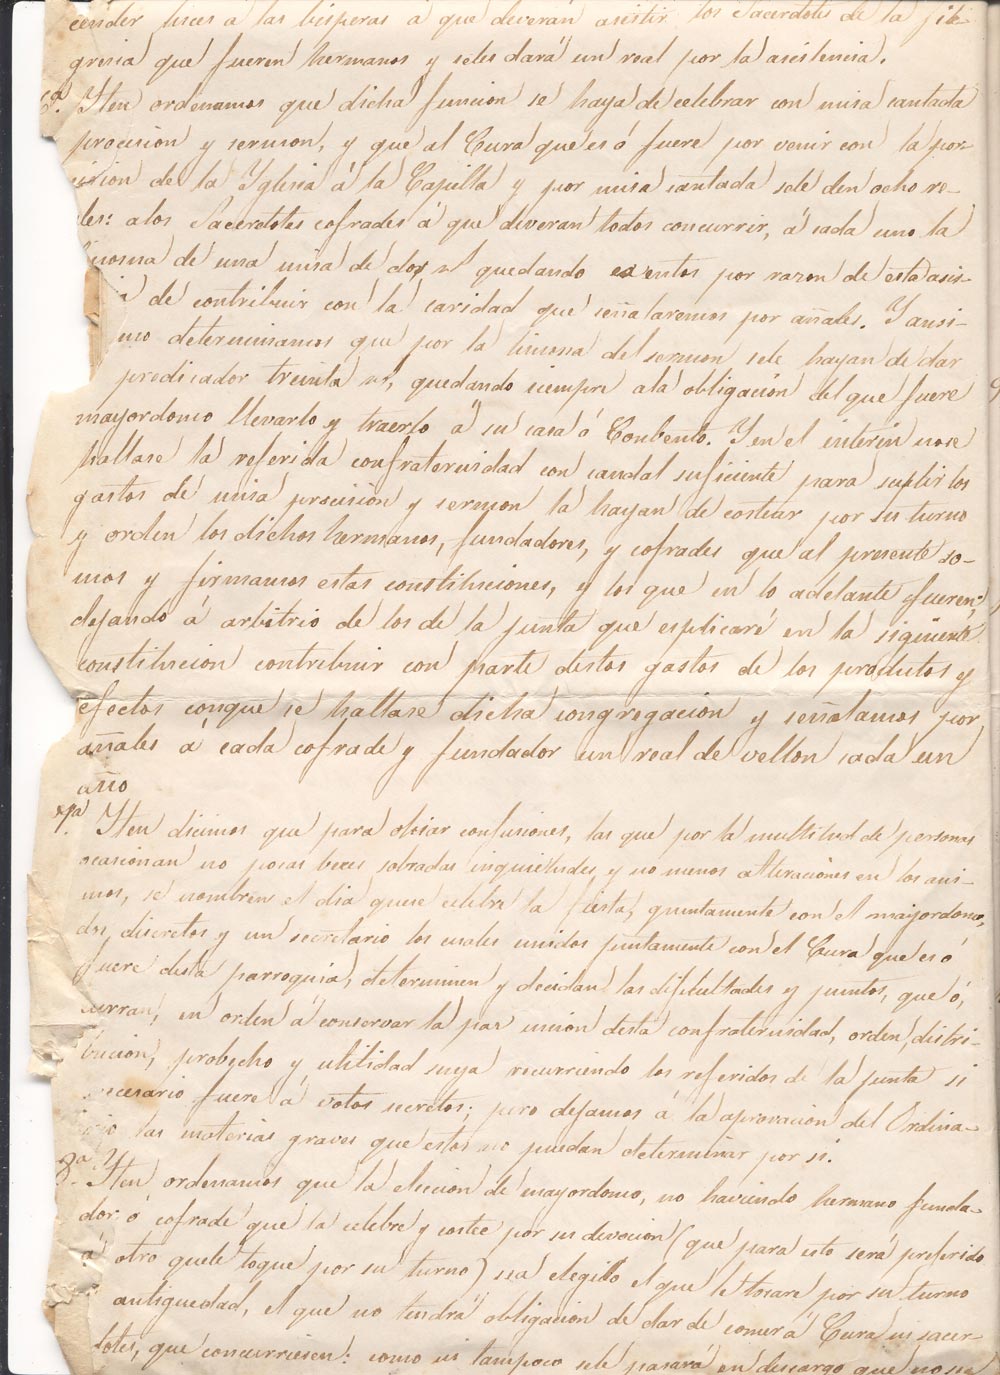 cender luces a las bisperas á que deveran asistir los Sacerdotes de la feli-
gresia que fueren hermanos y seles dará un real por la asistencia.
6ª. Yten ordenamos que dicha funcion se haya de celebrar con misa cantada
procision y sermon, y que al Cura que es ó fuere por venir con la por-
cision de la Yglesia á la Capilla y por misa cantada sele den ocho re-
ales: alos Sacerdotes cofrades á que deveran todos concurrir, á cada uno la
limosna de una misa de dos rs quedando exentos por razon de esta asis-
de contribuir con la caridad que señalaremos por añales. Y ansi-
mo determinamos que por la limosna del sermon sele hayan de dar
predicador treinta rs, quedando siempre ala obligacion del que fuere
mayordomo llevarlo y traerlo á su casa ó Conbento. Y en el interin nose
hallase la referida confraternidad con caudal suficiente para suplir los
gastos de misa procision y sermon la hayan de costear por su turno
y orden los dichos hermanos, fundadores, y cofrades que al presente so-
mos y firmamos estas constituciones, y los que en lo adelante fueren;
dejando á arbitrio de los de la junta que esplicaré en la siguiente
constitucion contribuir con parte destos gastos de los produtos y
efectos conque se hallase dicha congregacion y señalamos por
añales á cada cofrade y fundador un real de vellon cada un
año
7ª. Yten dicimos que para obiar confusiones, las que por la multitud de personas
ocasionan no pocas beces sobradas inquietudes, y no menos alteraciones en los ani-
mos, se nombren el dia quese celebre la fiesta, guntamente con el mayordomo,
dos discretos y un secretario los cuales unidos juntamente con el Cura que es ó
fuere desta parroquia, determinen y decidan las dificultades y puntos, que ó,
curran, en orden á conservar la paz union desta confraternidad, orden, distri-
bucion, probecho y utilidad suya recurriendo los referidos de la junta si
necesario fuere á votos secretos; pero dejamos á la aprovacion del Ordina-
rio las materias graves que estos no puedan determinar por si.
8ª. Yten ordenamos que la eleccion de mayordomo, no haviendo hermano funda-
dor, ó cofrade que la celebre y costee por su devocion (que para esto será preferido
á otro quele toque por su turno) sea elegido el que le tocare por su turno
antiguedad, el que no tendrá obligacion de dar de comer á Cura ni sacer-
dotes, que concurriesen: como ni tampoco sele pasará en descargo que no sea